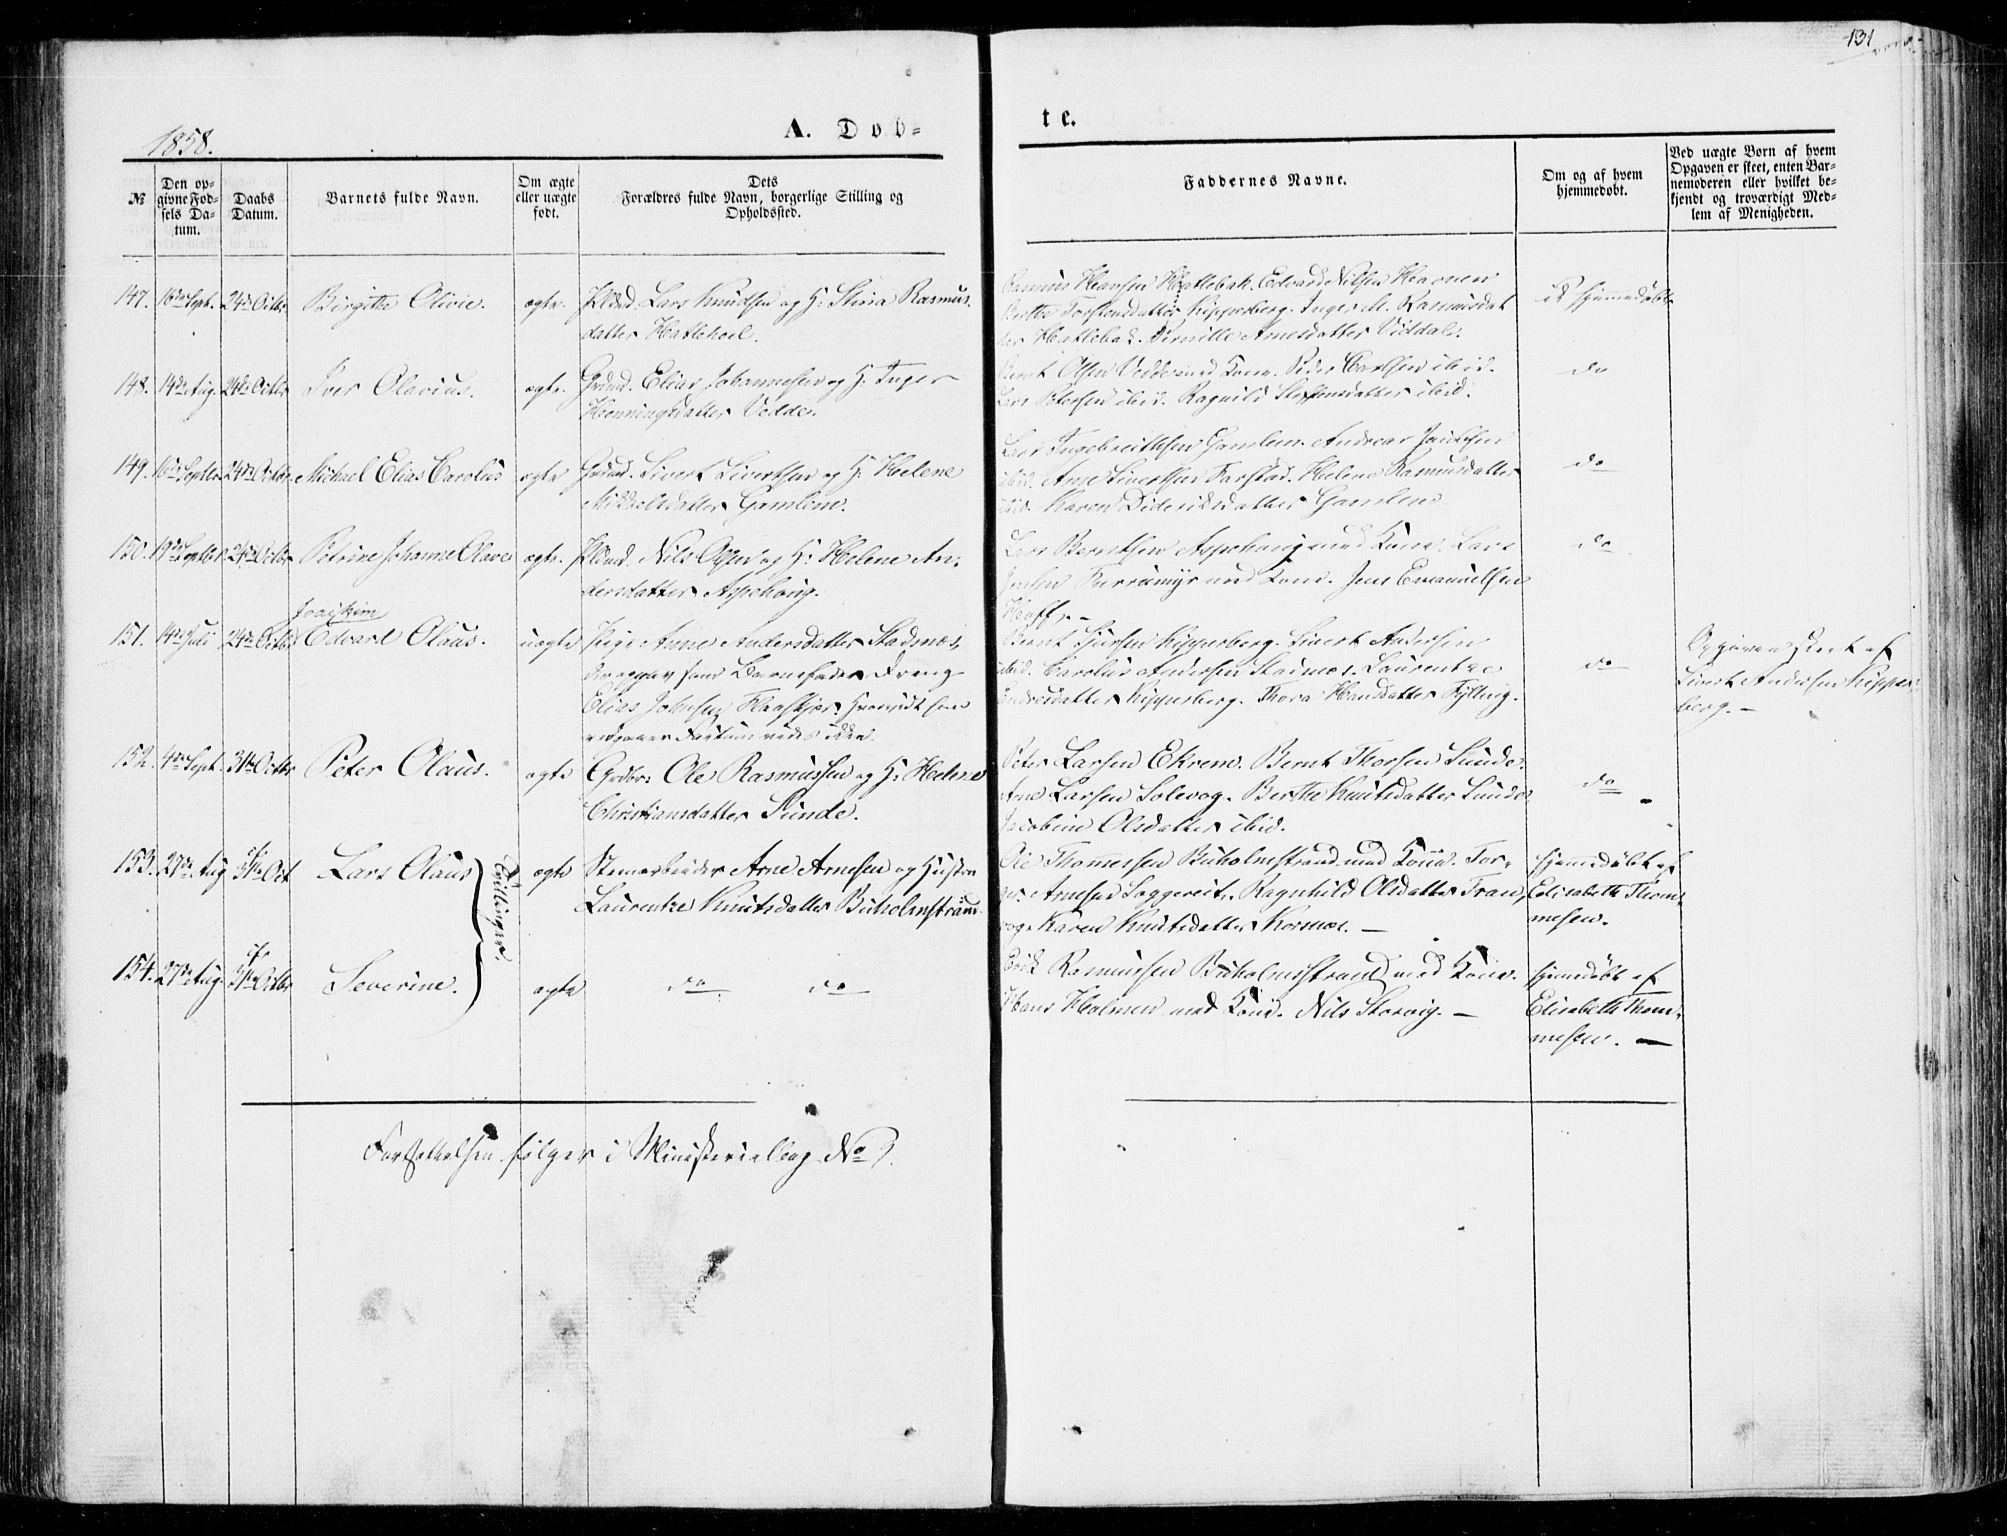 131
1858.
A. Døb-
te.
№
Den op-
givne Fød-
sels Da-
tum.
Daabs
Datum.
Barnets fulde Navn.
Om ægte
eller uægte
født.
Dets
Forældres fulde Navn, borgerlige Stilling og
Opholdssted.
Faddernes Navne.
Om og af hvem
hjemmedøbt.
Ved uægte Børn af hvem
Opgaven er skeet, enten Bar-
nemoderen eller hvilket be-
kjendt og troværdigt Med-
lem af Menigheden.
147. 16de Sept. 24de Octbr Birgitte Olivie. ægte. Lars Knudsen og H: Rasmus-
datter Hatlehoel.
Rasmus Hansen Hatlebak. Edvard Nilsen
Berthe Torstensdatter Kipperberg. Inger M. Rasmusdat
ter Hatlebak. Pernille Arnesdatter Viddal.
ei hjemmedøbt
148. 14de Aug. 24de Octbr Iver Olavius. ægte. Grdmd. Elias Johannesen og H: Inger
Henningsdatter Vedde.
Bernt Olsen Vedde med Kone. Peder Carlsen ibid.
Lars Petersen ibid. Ragnild Steffensdatter ibid.
do
149. 16de Septbr 24de Octbr. Michael Elias Carolus ægte Grdmd. Sivert Sivertsen og H: Helene
Mikkelsdatter Gamlem.
Lars Ingebretsen Gamlem. Andreas
ibid. Arne Sivertsen Farstad. Helene Rasmusdatter
ibid. Karen Dideriksdatter Gamlem
do
150. 19de Septbr 24de Octbr Petrine Johanne Olave ægte. Nils Olsen og H: Helene An-
dersdatter Aspehaug.
Lars Berntsen Aspehaug med Kone. Lars
Jensen med Kone. Jens Emanuelsen
Hoff. –
do
Joachim
151. 14de Juli 24de Octbr Edvard Olaus. uægte Pige Anne Andersdatter Stadsnæs,
der opgav som Barnefader Dreng
Elias Johnsen Hvorvidt før
Bernt Sjursen Kipperberg. Sivert Andersen
ibid. Carolus Andersen Stadsnæs. Laurentze
Andersdatter Kipperberg. Thora Hansdatter Fylling.
do
Opgaven skeet af
Sivert Andersen Kipper-
berg. –
152. 4de Sept. 31te Octbr Peter Olaus. ægte Grdbr: Ole Rasmussen og H: Helene
Christiansdatter Sunde.
Peter Larsen Ekrem. Bernt Thorsen Sunde.
Arne Larsen Solevog. Berthe Knutsdatter Sunde
Jacobine Olsdatter ibid.
do
153. 27de Aug 31te Oct Lars Olaus ægte Arne Arnesen og Hustru
Laurentze Knutsdatter Buholmstrand.
Ole Thommessen Buholmstrand med Kone. Tor-
ger Arnesen Ragnhild Olsdatter Tran-
vog. Karen Knutsdatter Kornæs. –
hjemmedøbt af
Elisabeth Thom-
mesen.
Tvillinger.
154. 27de Aug. 31te Octbr Severine. ægte do do
Erik Rasmussen Buholmstrand med Kone.
Hans Holmen med Kone. Nils Storvig. –
hjemmedøbt af
Elisabeth Thom-
mesen. –
Fortsættelsen følger i Ministerialbog No